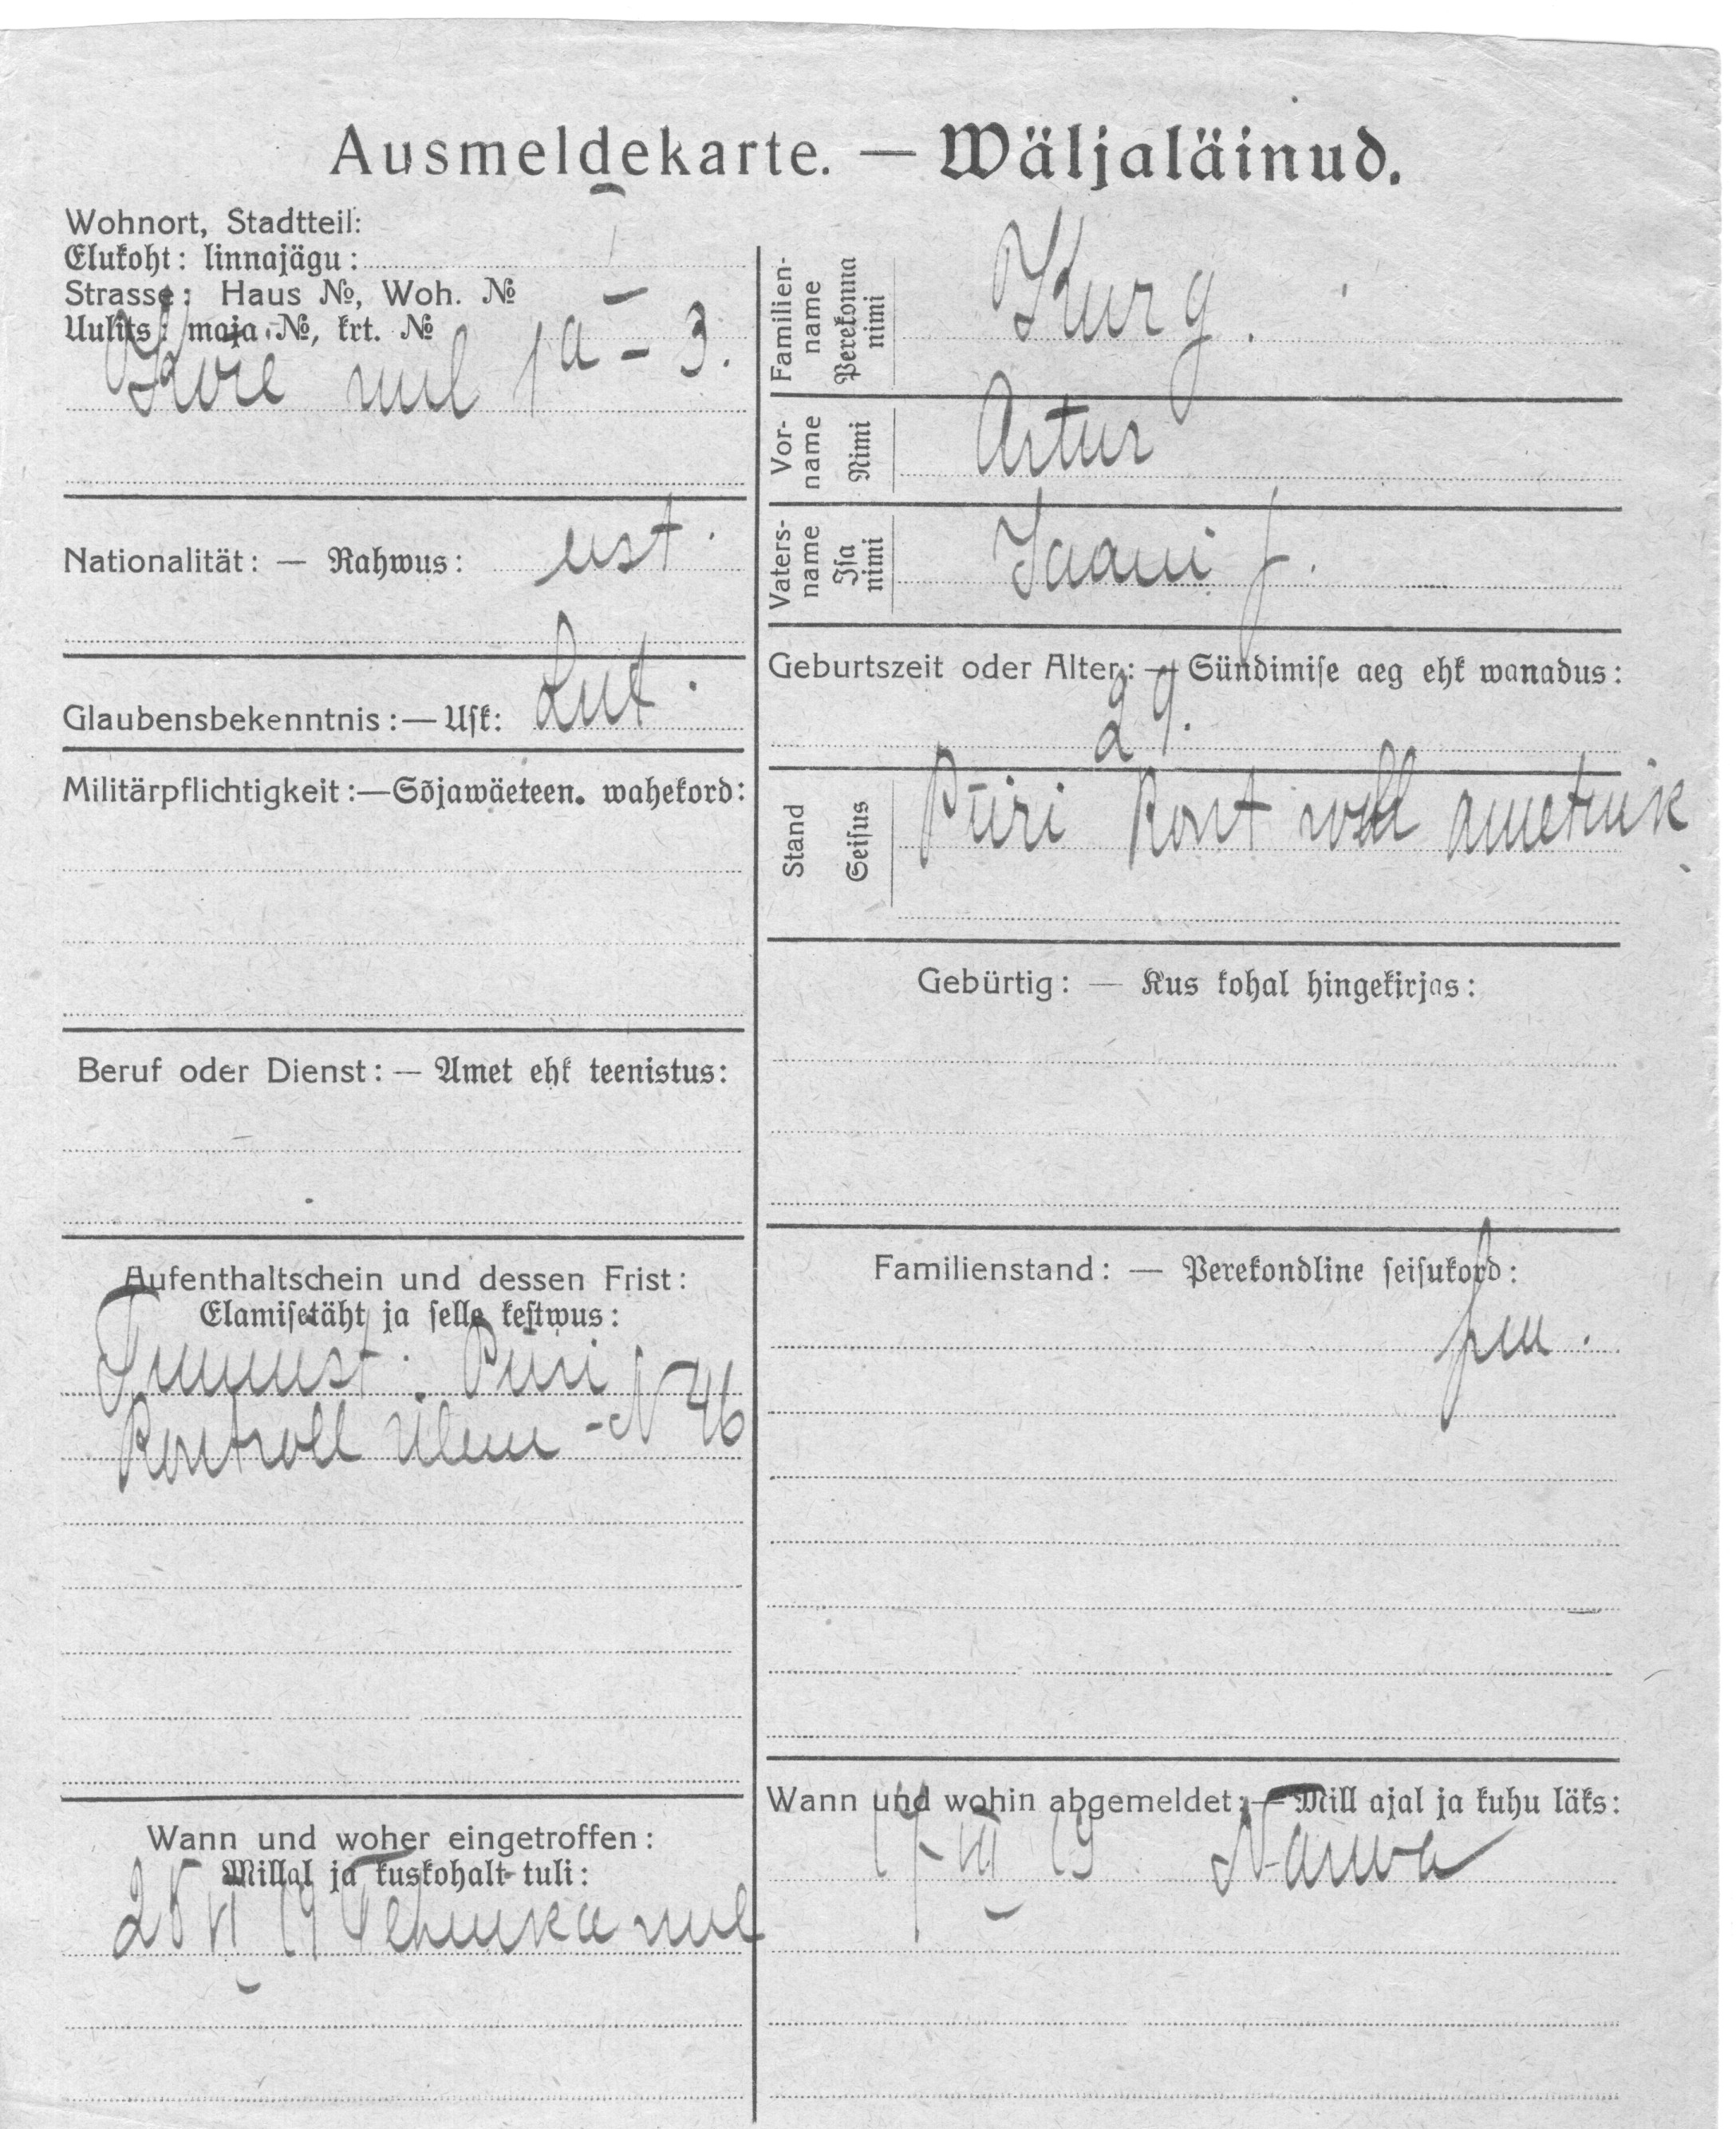 Ausmeldekarte. — Wäljaläinud.
Wohnort, Stadtteil:
Elukoht: linnajägu:
Strasse: Haus №, Woh. №
Uulits: maja №, krt. №
1a - 3.
Nationalität: — Rahwus: eest.
Glaubensbekenntnis: — Usk: Lut.
Militärpflichtigkeit: — Sõjawäeteen. wahekord:
Beruf oder Dienst: — Amet ehk teenistus:
Aufenthaltschein und dessen Frist:
Elamisetäht ja selle kestwus:
Tunnust: Piiri
Kontroll ülem - N 46
Wann und woher eingetroffen:
Millal ja kuskohalt tuli:
25 VI 19
Familienname Perekonna nimi Kurg.
Vorname Nimi Artur
Vatersname Isa nimi Jaani p.
Geburtszeit oder Alter: — Sündimise aeg ehk wanadus:
29.
Stand Seisus Piiri kont ametnik
Gebürtig: — Kus kohal hingekirjas:
Familienstand: — Perekondline seisukord:
Wann und wohin abgemeldet: — Mill ajal ja kuhu läks:
19 Narva